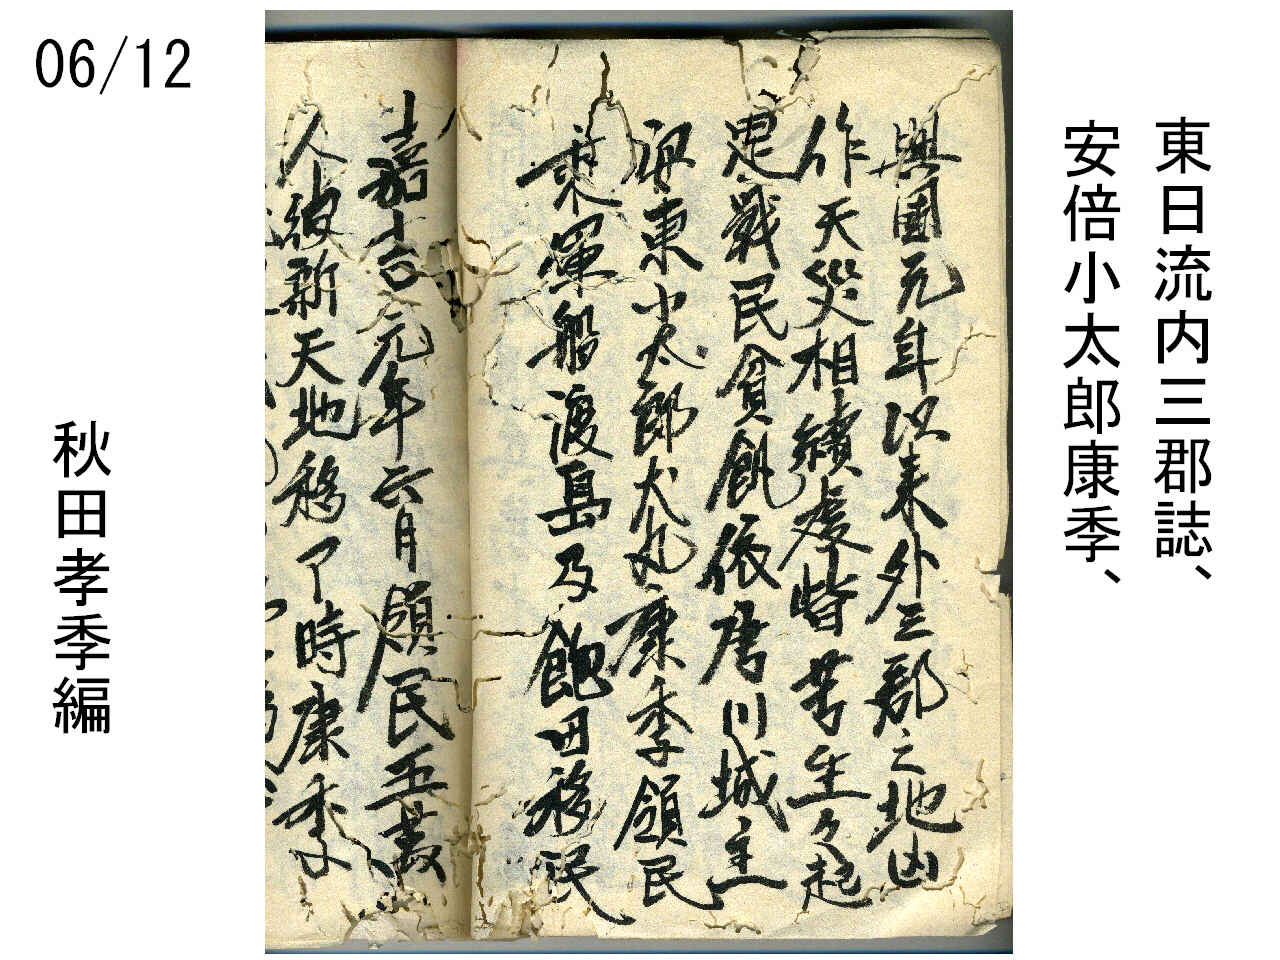 06/12
東日流内三郡誌、
安倍小太郎康季、
興國元年以来外三郡之地凶
作天災相續處皆苦生々起
是戦民貧飢依唐川城主
安東小太郎犬丸康季領民
乗軍船渡島及飽田移民
嘉吉元年六月領民五萬
人彼新天地移了時康季
秋田孝季編